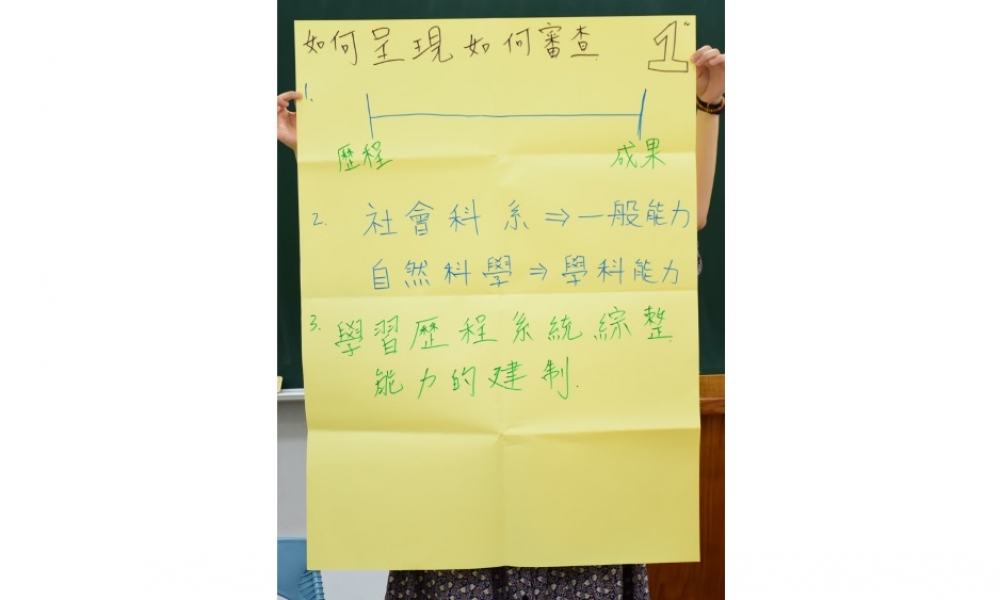 如何呈現如何審查 1
1.
歷程 成果
2. 社會科系⇒一般能力
自然科學⇒學科能力
3. 學習歷程系統綜整
能力的建制.